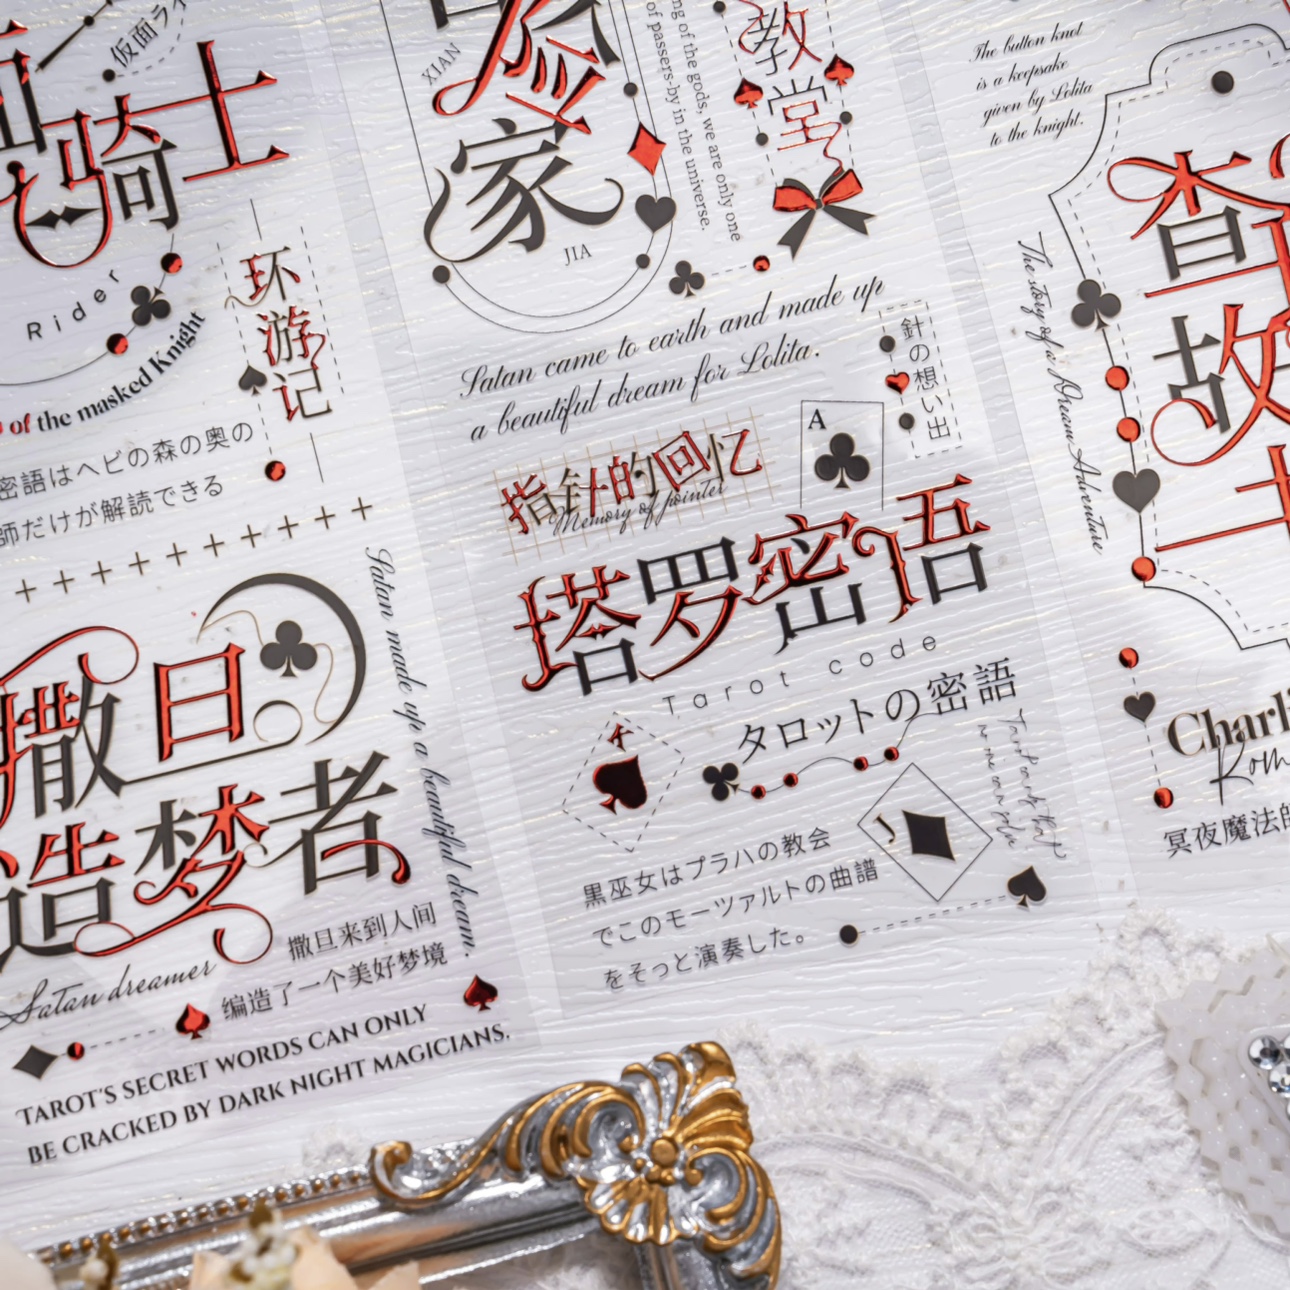 仮面ライ
骑士
Rider
of the masked Knight
环游记
密語はヘビの森の奥の
師だけが解読できる
撒旦
造梦者
Satan made up a beautiful dream.
Satan dreamer
撒旦来到人间
编造了一个美好梦境
TAROT'S SECRET WORDS CAN ONLY
BE CRACKED BY DARK NIGHT MAGICIANS.
XIAN
家
JIA
ng of the gods, we are only one
of passers-by in the universe.
教堂
Satan came to earth and made up
a beautiful dream for Lolita.
針の想い出
指针的回忆
Memory of pointer
A
塔罗密语
Tarot code
タロットの密語
A
J
黒巫女はプラハの教会
でこのモーツァルトの曲譜
をそっと演奏した。
The button knot
is a keepsake
given by Lolita
to the knight.
The story of a Dream Adventure
查
故
Charli
Rom
冥夜魔法師